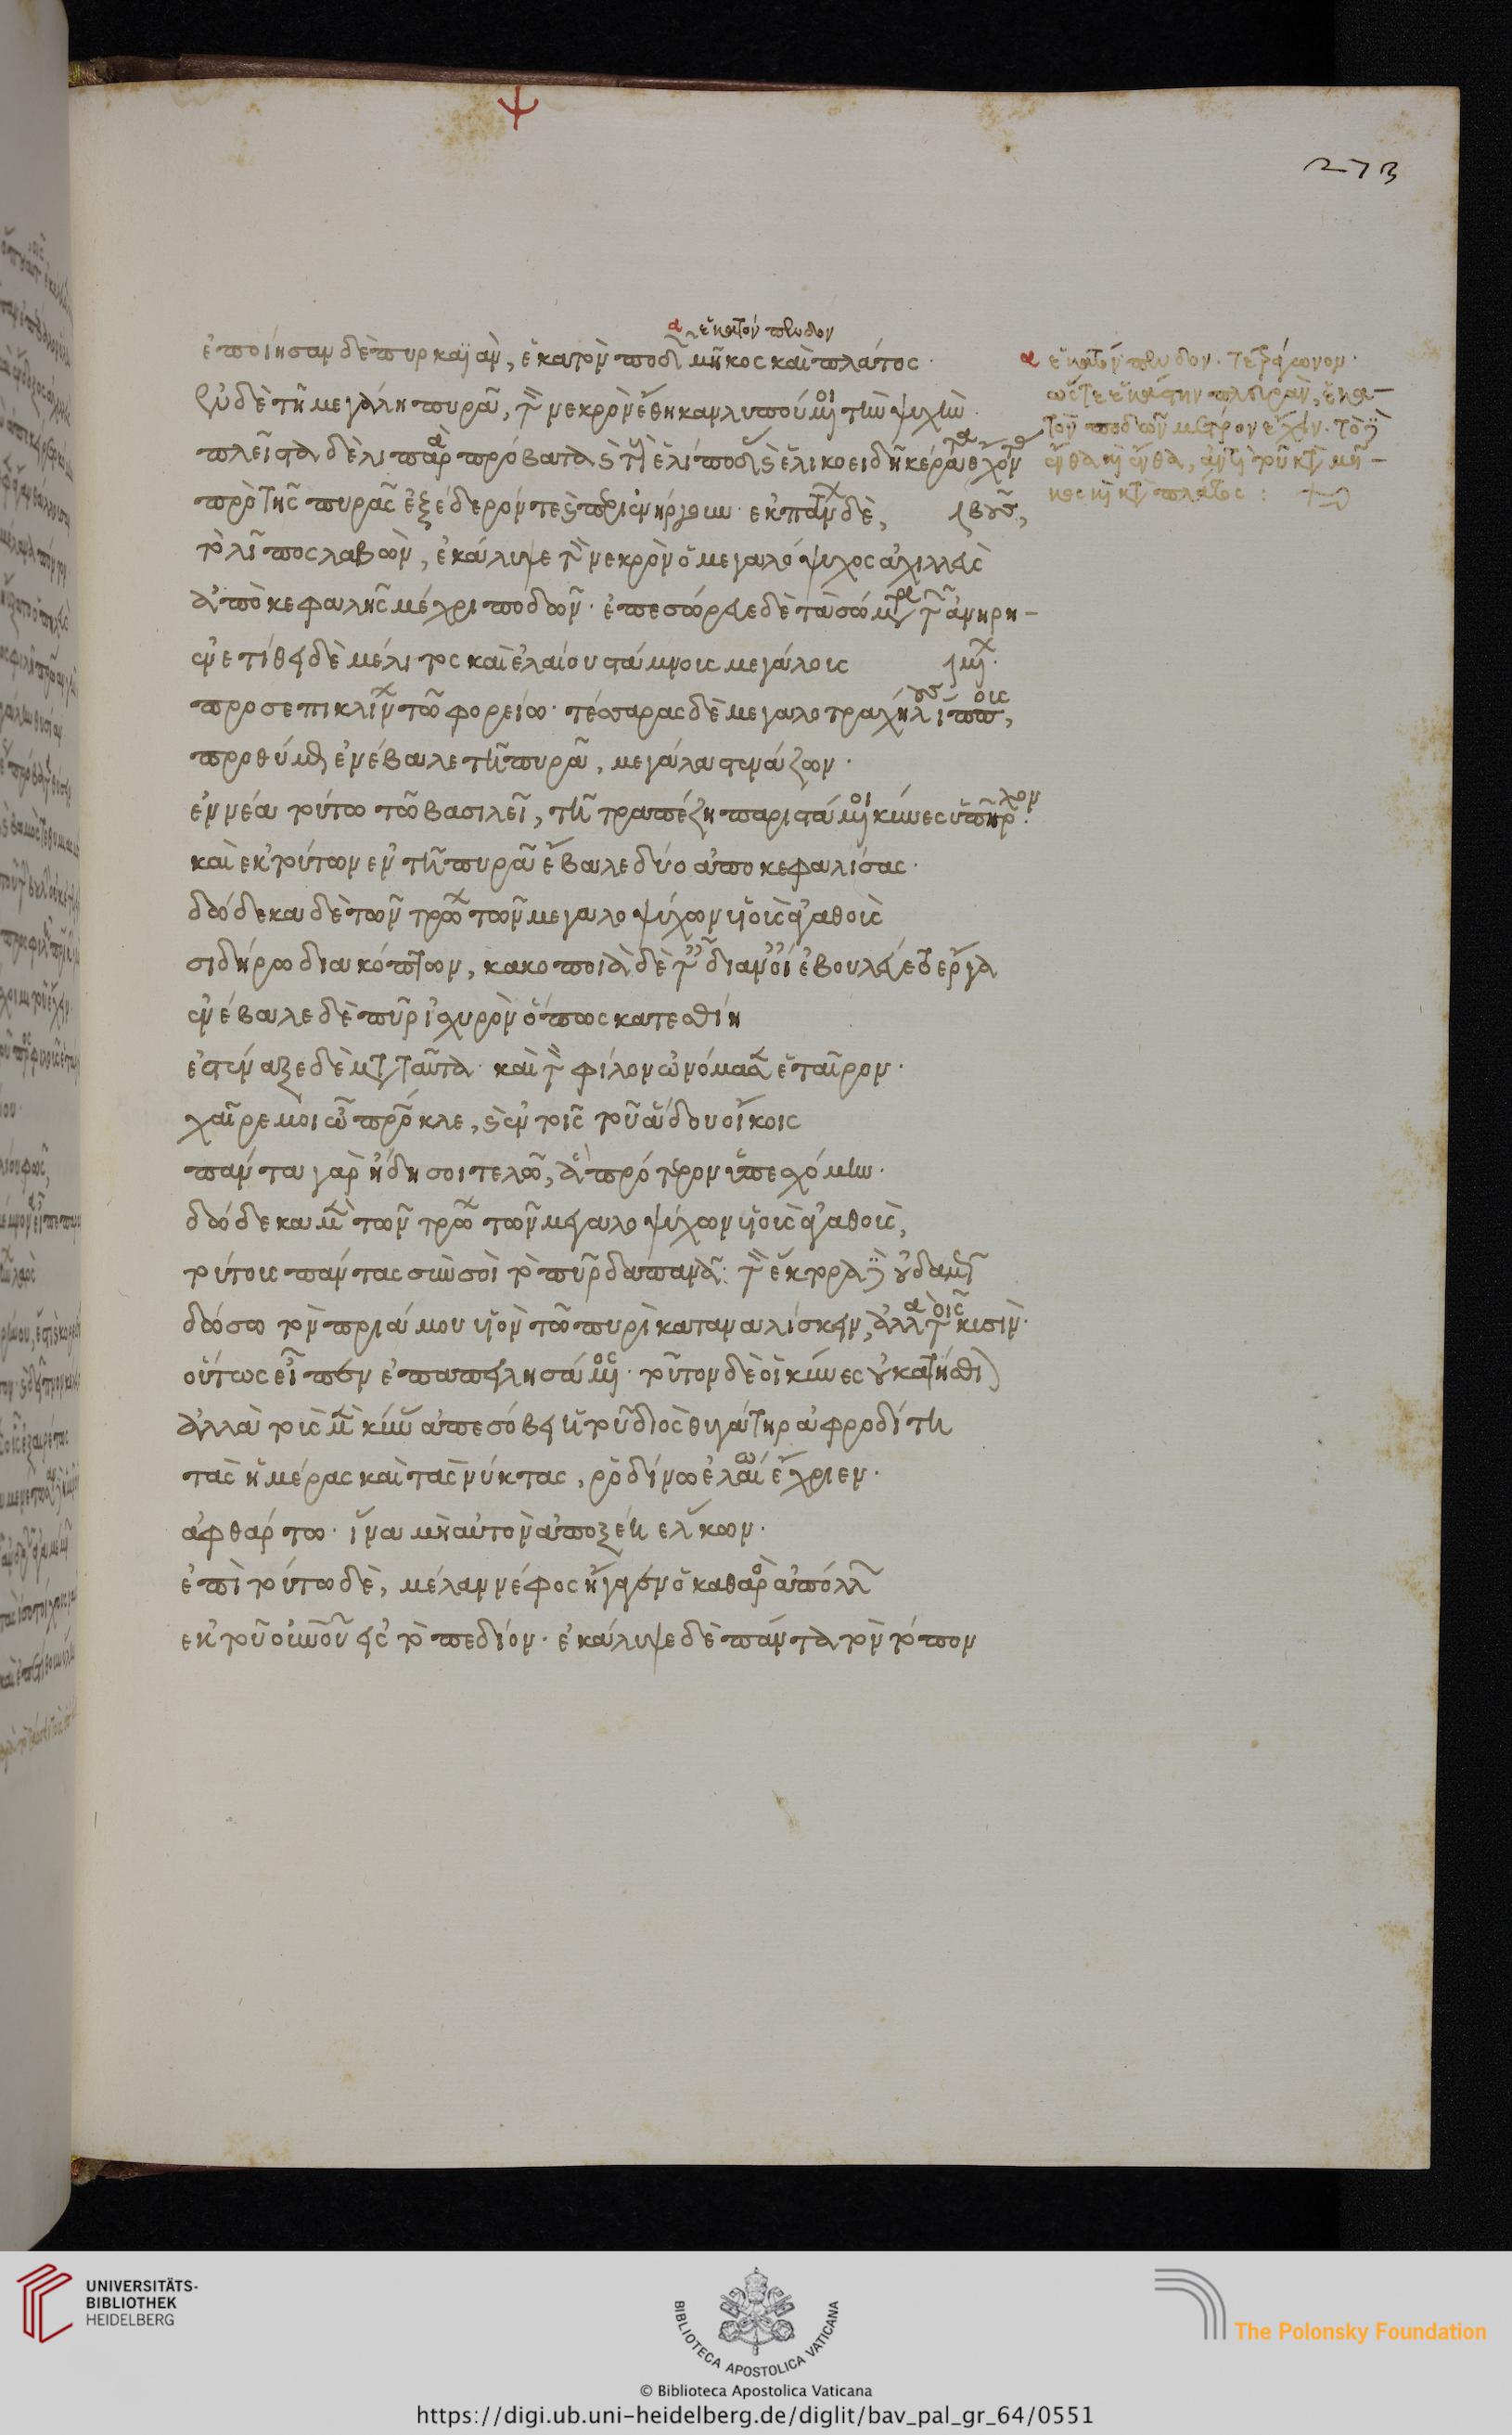 Ψ
273
α ἑκατόνπεδον
ἐποίησαν δὲ πυρκαϊὰν, ἑκατὸν ποδῶν μῆκος καὶ πλάτος.
ἐν δὲ τῆ μεγάλη πυρᾶ, τὸν νεκρὸν ἔθηκαν λυπούμενοι τὴν ψυχὴν.
πλεῖστα δὲ λιπαρὰ πρόβατα καὶ ἑλίποδας καὶ ἑλικοειδῆ κέρατα ἔχοντας
πρὸ τῆς πυρᾶς ἐξέδερόν τε καὶ περιενήργουν. ἐκ πάντων δὲ, βοῦς,
τὸ λίπος λαβὼν, ἐκάλυψε τὸν νεκρὸν ὁ μεγαλόψυχος ἀχιλλεὺς
ἀπὸ κεφαλῆς μέχρι ποδῶν. ἐπεσώρευε δὲ τὰ σώματα τῶν ἀνηρη-
ἐνετίθει δὲ μέλιτος καὶ ἐλαίου στάμνοις μεγάλοις μένων.
προσεπικλίνων τῶ φορείω. τέσσαρας δὲ μεγαλοτραχήλους ἵππους,
προθύμως ἐνέβαλε τῆ πυρᾶ, μεγάλα στενάζων.
ἐννέα τούτω τῶ βασιλεῖ, τῆ τραπέζη παριστάμενοι κύνες ὑπῆρχον.
καὶ ἐκ τούτων ἐν τῆ πυρᾶ ἔβαλε δύο ἀποκεφαλίσας.
δώδεκα δὲ τῶν τρώων τῶν μεγαλοψύχων υἱοὺς ἀγαθοὺς
σιδήρω διακόπτων, κακοποιὰ δὲ τῆ διανοία ἐβουλεύετο ἔργα
ἐνέβαλε δὲ πῦρ ἰσχυρὸν ὅπως κατεσθίη
ἐστέναξε δὲ μετὰ ταῦτα. καὶ τὸν φίλον ὠνόμασεν ἑταῖρον.
χαῖρε μοι ὦ πάτροκλε, καὶ ἐν τοῖς τοῦ ἅδου οἴκοις
πάντα γὰρ ἤδη σοι τελῶ, ἃ πρότερον ὑπεσχόμην.
δώδεκα μὲν τῶν τρώων τῶν μεγαλοψύχων υἱοὺς ἀγαθοὺς,
τούτους πάντας σὺν σοὶ τὸ πῦρ δαπανᾶ. τὸν ἕκτορα δὲ οὐδαμῶς
δώσω τὸν πριάμου υἱὸν τῶ πυρὶ καταναλίσκειν, ἀλλὰ τοῖς κυσὶν.
οὕτως εἶπεν ἐπαπειλησάμενος. τοῦτον δὲ οἱ κύνες οὐ κατήσθιον
ἀλλὰ τοὺς μὲν κύνας ἀπεσόβει ἡ τοῦ διὸς θυγάτηρ ἀφροδίτη
τὰς ἡμέρας καὶ τὰς νύκτας, ῥοδίνω ἐλαίω ἔχριεν.
ἀφθάρτω. ἵνα μὴ αὐτὸν ἀποξέη ἕλκων.
ἐπὶ τούτω δὲ, μέλαν νέφος ἤγαγεν ὁ καθαρὸς ἀπόλλων
ἐκ τοῦ οὐρανοῦ εἰς τὸ πεδίον. ἐκάλυψε δὲ πάντα τὸν τόπον
α ἑκατόνπεδον. τετράγωνον.
ὥστε ἑκάστην πλευρὰν, ἑκα-
τὸν ποδῶν μέτρον ἔχειν. τὸ δὲ
ἔνθα καὶ ἔνθα, ἀντὶ τοῦ κατὰ μῆ-
κος καὶ κατὰ πλάτος :
UNIVERSITÄTS-
BIBLIOTHEK
HEIDELBERG
BIBLIOTECA APOSTOLICA VATICANA
The Polonsky Foundation
© Biblioteca Apostolica Vaticana
https://digi.ub.uni-heidelberg.de/diglit/bav_pal_gr_64/0551